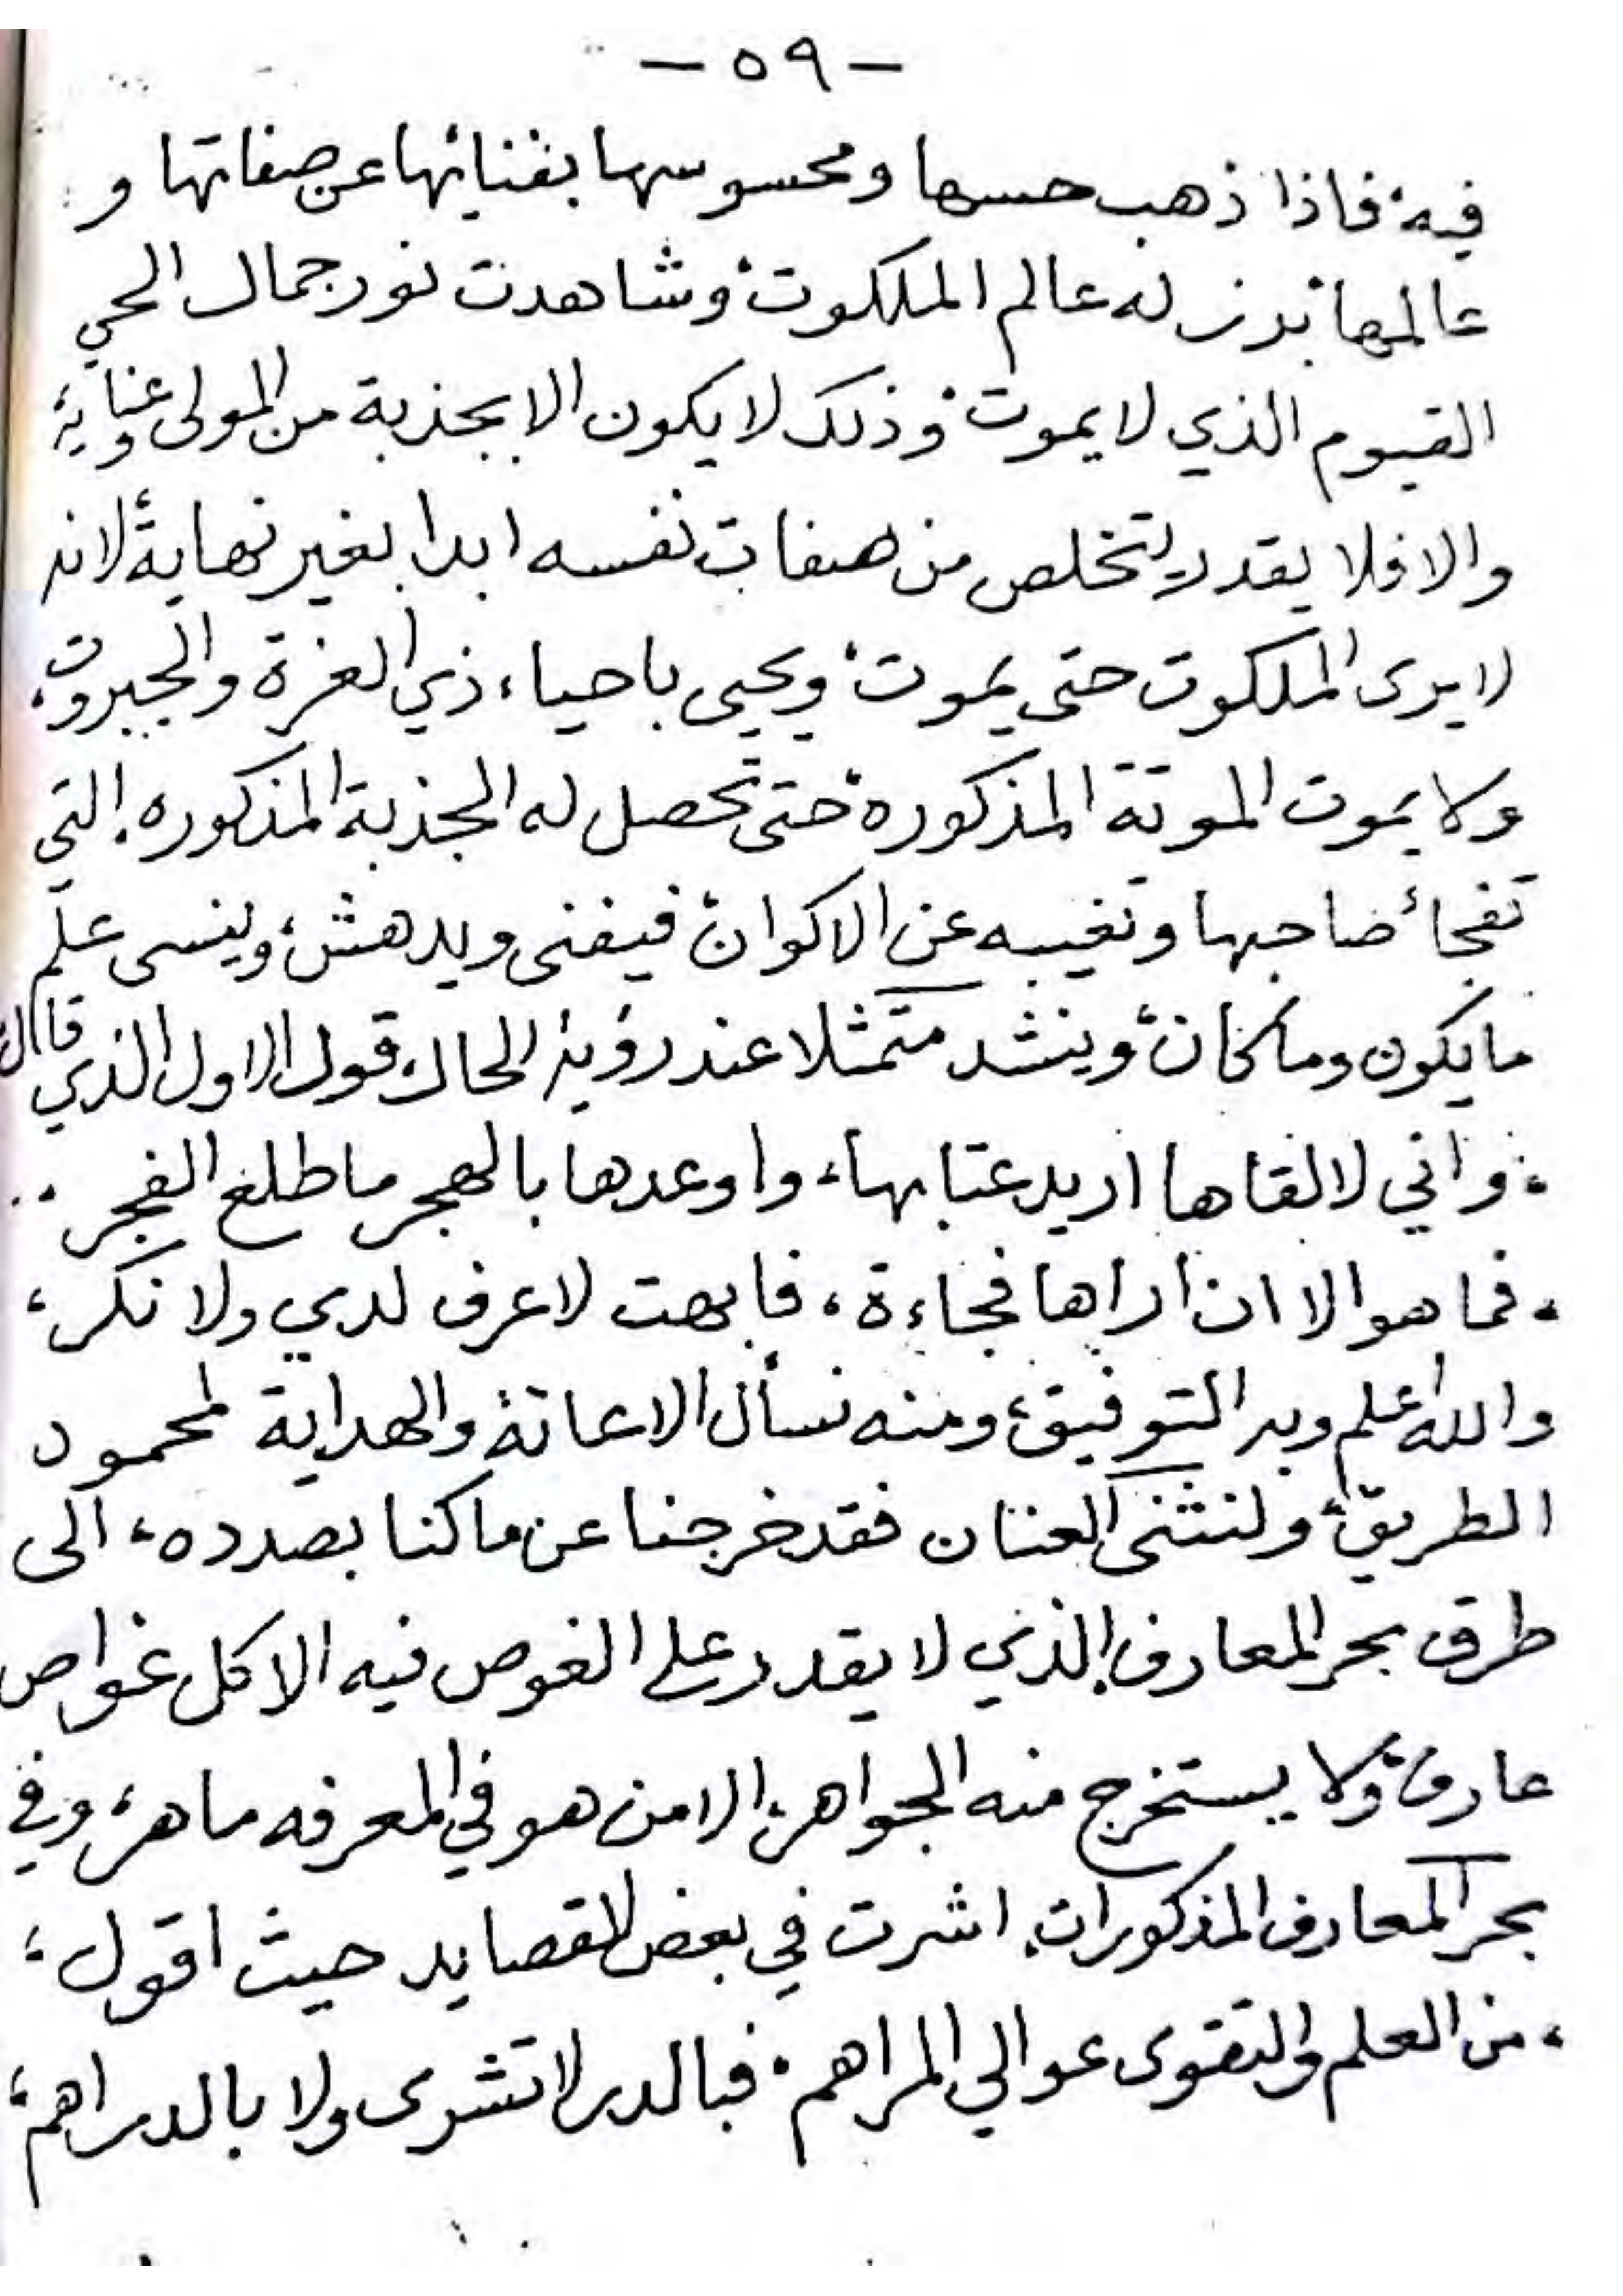 - ٥٩ -
فيه، فاذا ذهب حسها ومحسوسها بفنائها عن صفاتها و
عالمها برز له عالم الملكوت، وشاهدت نور جمال الحي
القيوم الذي لا يموت، وذلك لا يكون الا بجذبة من المولى وعناية،
والا فلا يقدر يتخلص من صفات نفسه ابدا بغير نهاية، لانه
لا يرى الملكوت حتى يموت، ويحيى باحياء ذي العزة والجبروت،
ولا يموت الموتة المذكورة، حتى تحصل له الجذبة المذكوره، التي
تفجأ صاحبها وتغيبه عن الاكوان، فيفنى ويدهش، وينسى علم
ما يكون وما كان، وينشد متمثلا عند رؤية الحال، قول الاول الذي قال،
، واني لالقاها اريد عتابها، واوعدها بالهجر ما طلع الفجر ..
، فما هو الا ان اراها فجاءة، فابهت لا عرف لدي ولا نكر،
والله اعلم وبه التوفيق، ومنه نسأل الاعانة والهداية لمحمود
الطريق، ولنثنى العنان فقد خرجنا عن ما كنا بصدده، الى
طرق بحر المعارف، الذي لا يقدر على الغوص فيه الا كل غواص
عارف، ولا يستخرج منه الجواهر، الا من هو في المعرفه ماهر، وفي
بحر المعارف المذكورات، اشرت في بعض القصايد حيث اقول،
، من العلم والتقوى عوالي المراهم، فبالدر لا تشرى ولا بالدراهم،